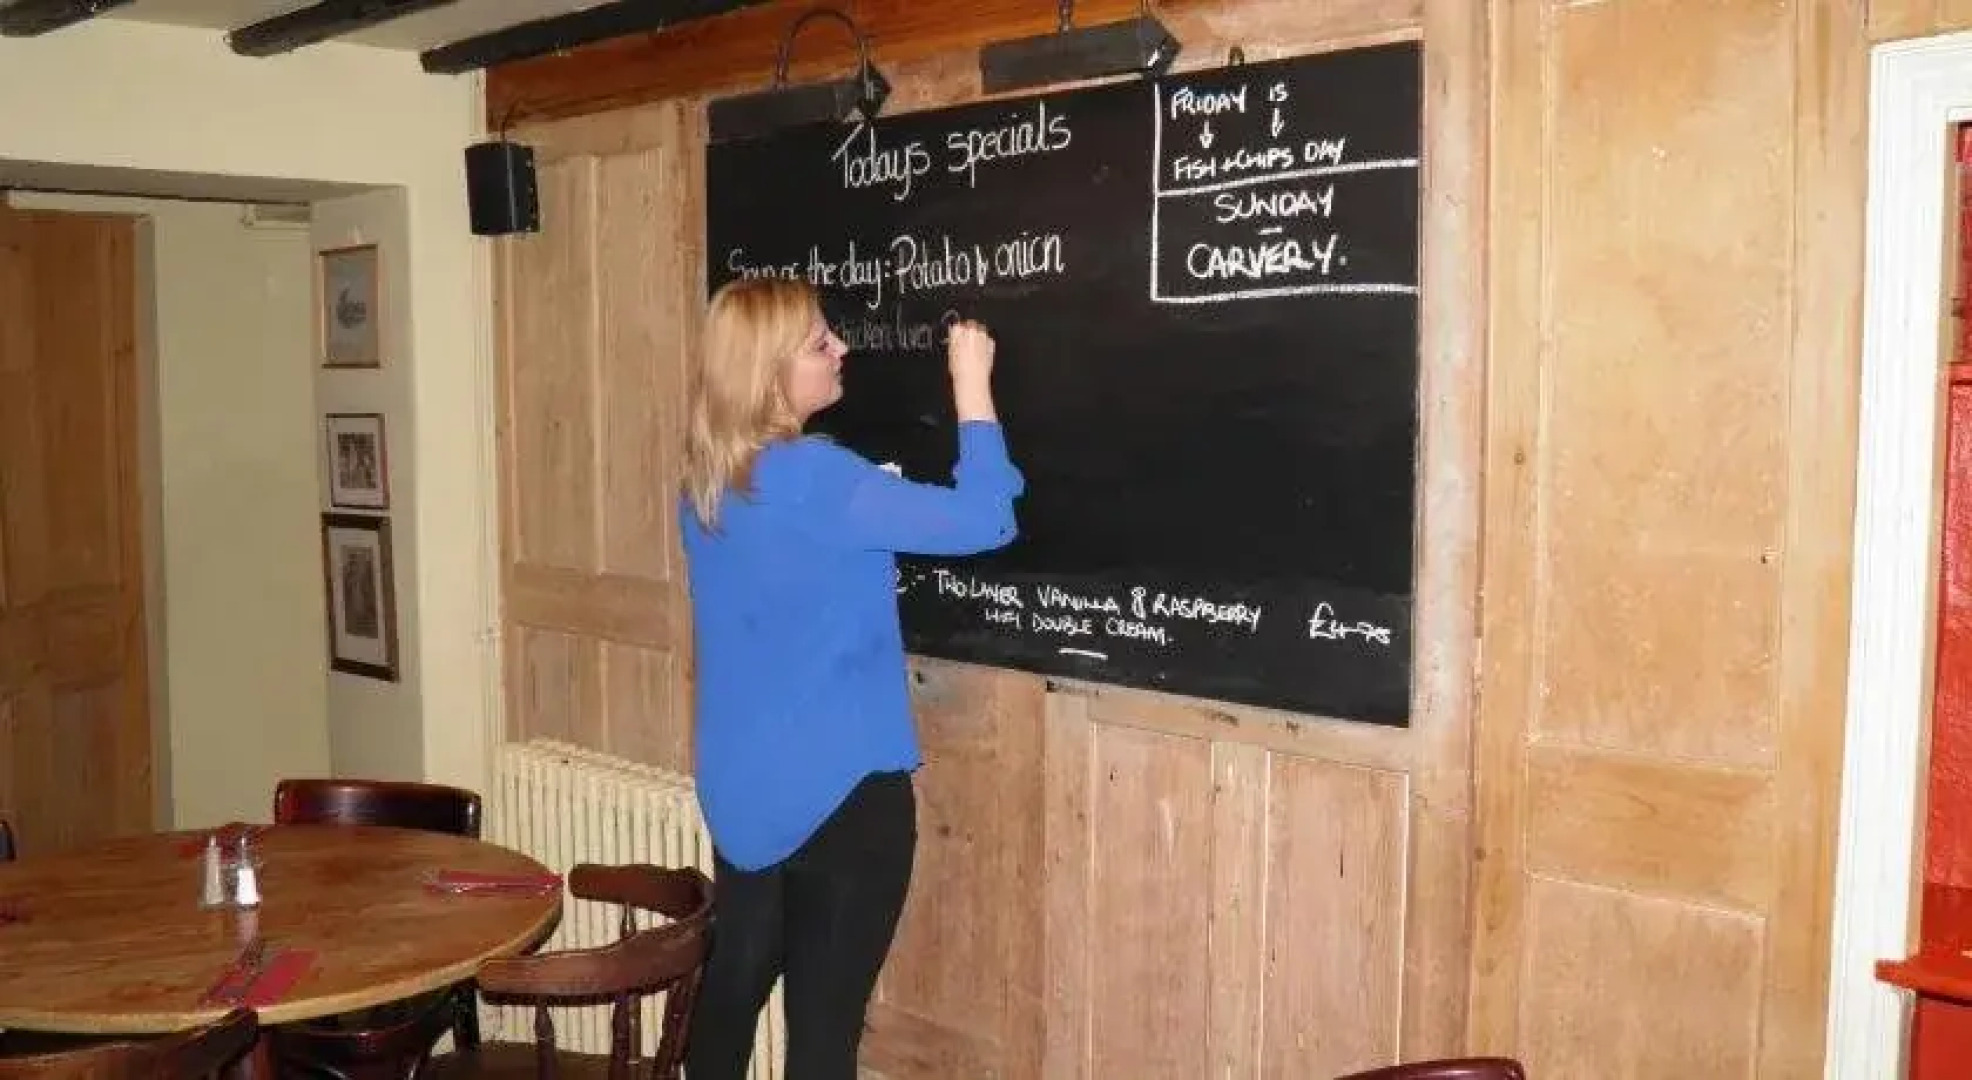 Todays specials
Soup of the day: Potato & onion
chicken liver
FRIDAY IS
FISH & CHIPS DAY
SUNDAY
CARVERY.
:- TWO LAYER VANILLA & RASPBERRY
DOUBLE CREAM.